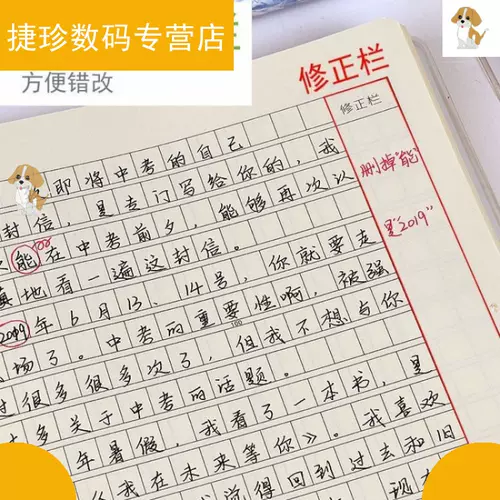 捷珍数码专营店
方便错改
修正栏
修正栏
即将中考的自己
封信，是专门写给你的，我
能在中考前夕，能够再次认
真地看一遍这封信。
2019年6月13、14号，你就要走
场了。中考的重要性啊，被强
100
过很多很多次了，但我不想与你
多关于中考的话题。
年暑假，我看了一本书，是
《我在未来等你》。我喜欢
说得回到过去和旧
删掉"能"
是"2019"